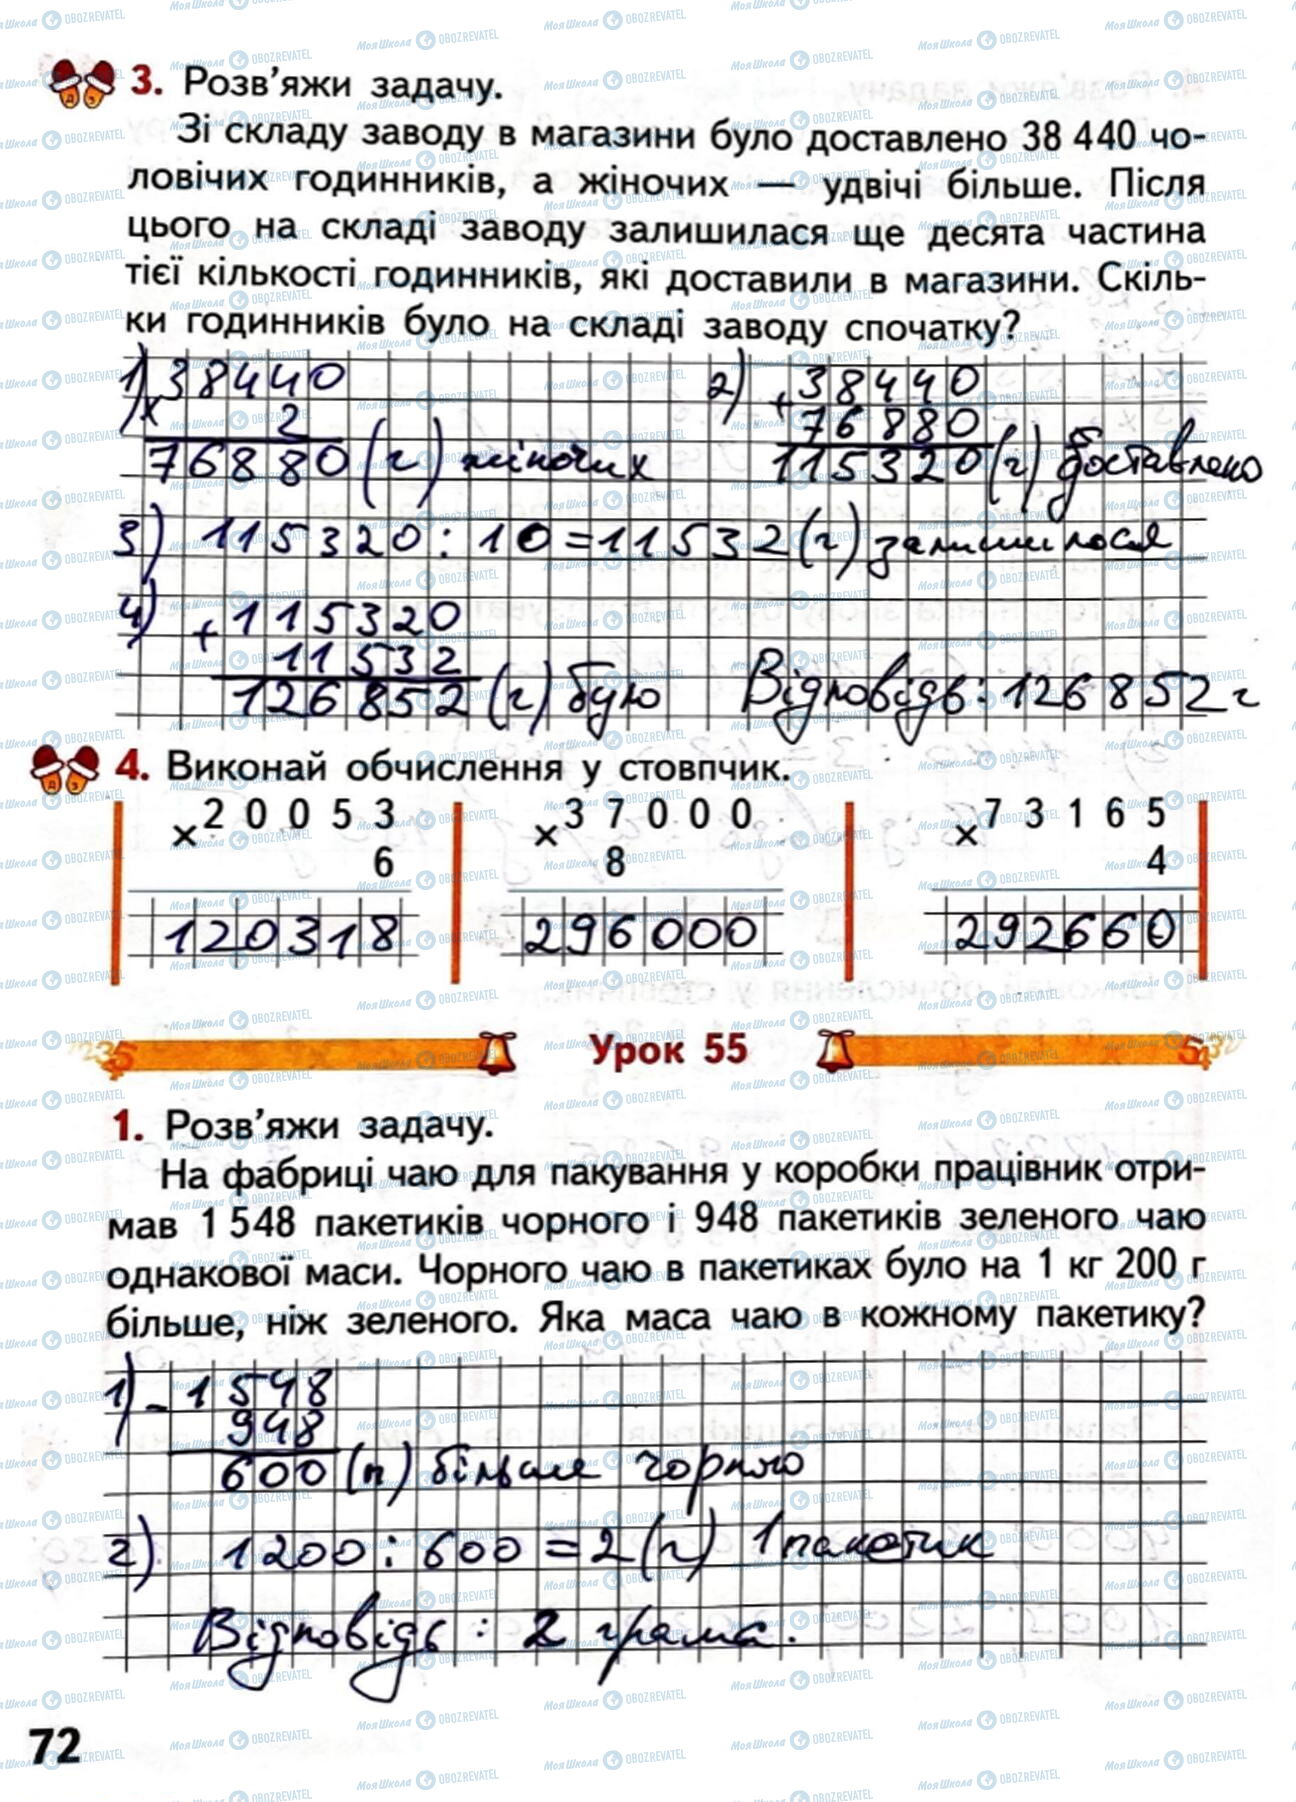 3. Розв'яжи задачу.
Зі складу заводу в магазини було доставлено 38 440 чо-
ловічих годинників, а жіночих — удвічі більше. Після
цього на складі заводу залишилася ще десята частина
тієї кількості годинників, які доставили в магазини. Скіль-
ки годинників було на складі заводу спочатку?
1) 38440 2) 38440
× 2 + 76880
76880 (г) жіночих 115320 (г) доставлено
3) 115320 : 10 = 11532 (г) залишилося
4) + 115320
11532
126852 (г) було Відповідь: 126852 г
4. Виконай обчислення у стовпчик.
× 20053 × 37000 × 73165
6 8 4
120318 296000 292660
Урок 55
1. Розв'яжи задачу.
На фабриці чаю для пакування у коробки працівник отри-
мав 1 548 пакетиків чорного і 948 пакетиків зеленого чаю
однакової маси. Чорного чаю в пакетиках було на 1 кг 200 г
більше, ніж зеленого. Яка маса чаю в кожному пакетику?
1) - 1548
948
600 (п) більше чорного
2) 1200 : 600 = 2 (г) 1 пакетик
Відповідь : 2 грама.
72
МояШкола OBOZREVATEL